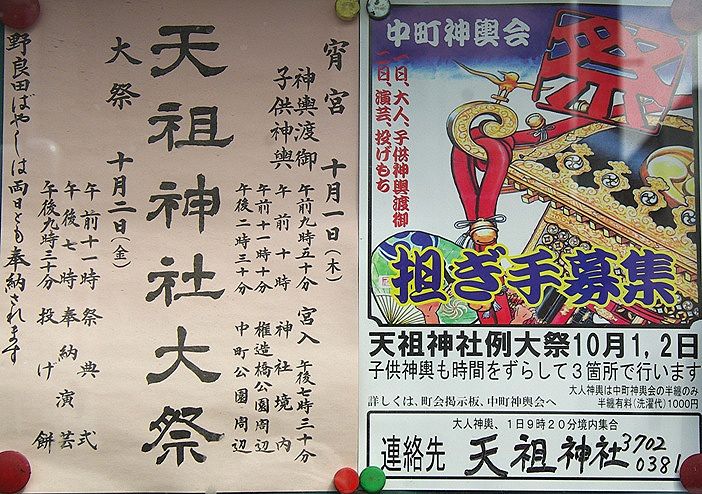 天祖神社大祭
宵宮 十月一日(木)
神輿渡御 午前九時五十分 宮入 午後七時三十分
子供神輿 午前十時 神社境内
午前十一時十分 権造橋公園周辺
午後二時三十分 中町公園周辺
大祭 十月二日(金)
午前十一時 祭典式
午後七時 奉納演芸
午後九時三十分 投げ餅
野良田ばやしは両日とも奉納されます
中町神輿会
祭
一日、大人、子供神輿渡御
二日、演芸、投げもち
担ぎ手募集
天祖神社例大祭10月1,2日
子供神輿も時間をずらして3箇所で行います
大人神輿は中町神輿会の半纏のみ
詳しくは、町会掲示板、中町神輿会へ
半纏有料(洗濯代)1000円
大人神輿、1日9時20分境内集合
連絡先 天祖神社 3702
0381